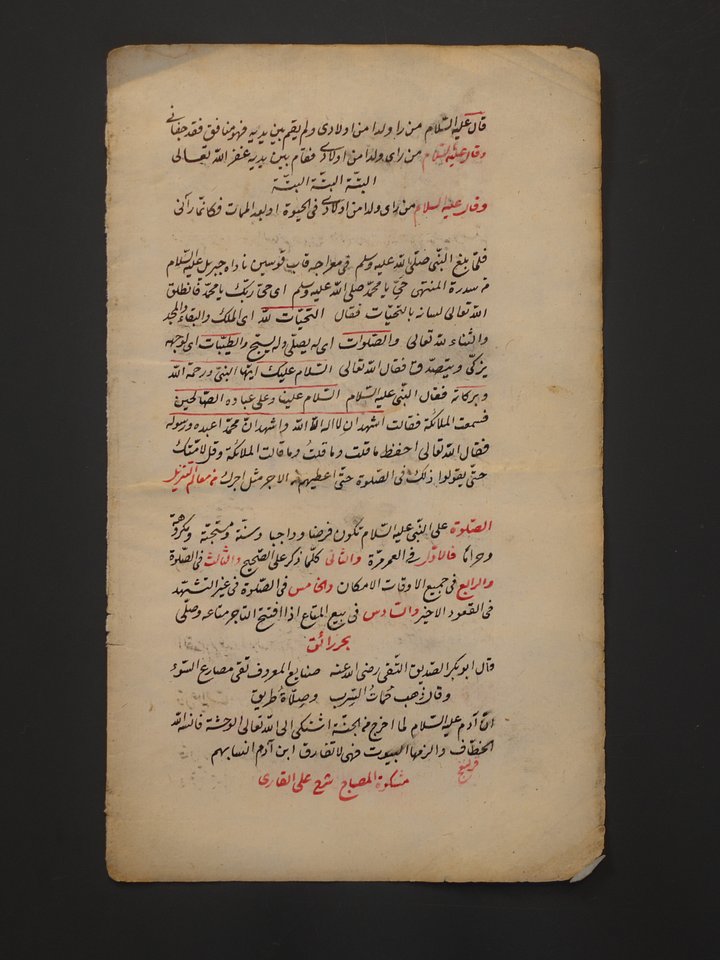 قال عليه السّلام من را ولدا من اولادى ولم يقم بين يديه فهو منافق فقد جفانى
وقال عليه السّلام من راى ولدا من اولادى فقام بين يديه غفر الله تعالى
البتّة البتّة البتّة
وقال عليه السلام من راى ولدا من اولادى فى الحيوة او بعد الممات فكانّما رآنى
فلمّا بلغ النّبى صلّى الله عليه وسلم فى معراجه قاب قوسين ناداه جبريل عليه السّلام
من سدرة المنتهى حىّ يا محمّد صلى الله عليه وسلم اى حىّ ربّك يا محمّد فانطلق
الله تعالى لسانه بالتحيّات فقال التحيّات لله اى الملك والبقاء والمجد
والثناء لله تعالى والصّلوات اى له يصلّى وله يسبّح والطيّبات اى لوجهه
يزكّى ويتصدّق فقال الله تعالى السّلام عليك ايّها النّبى ورحمة الله
وبركاته فقال النّبى عليه السّلام السّلام علينا وعلى عباده الصّالحين
فسمعت الملائكة فقالت اشهد ان لا اله الا الله واشهد انّ محمّدا عبده ورسوله
فقال الله تعالى احفظ ما قلت وما قلتُ وما قالت الملائكة وقل لامّتك
حتّى يقولوا ذلك فى الصّلوة حتّى اعطيهم من الاجر مثل اجرك من معالم التنزيل
الصّلوة على النّبى عليه السّلام تكون فرضا وواجبا وسنّة ومستحبّة ومكروهة
وحراما فالاوّل فى العمر مرّة والثانى كلّما ذكر على الصّحيح والثالث فى الصّلوة
والرابع فى جميع الاوقات الامكان والخامس فى الصّلوة فى غير التشهّد
فى القعود الاخير والسّادس فى بيع المتاع اذا افتتح التاجر متاعه وصلّى
بحر رائق
قال ابو بكر الصّديق التّقى رضى الله عنه صنايع المعروف تقى مصارع السّوء
وقال ذهب
انّ آدم عليه السّلام لما اخرج من الجنّة اشتكى الى الله تعالى الوحشة فآنسه الله
الخطّاف والزمها البيوت فهى لا تفارق ابن آدم انسا بهم
مشكوة المصباح شرح على القارى